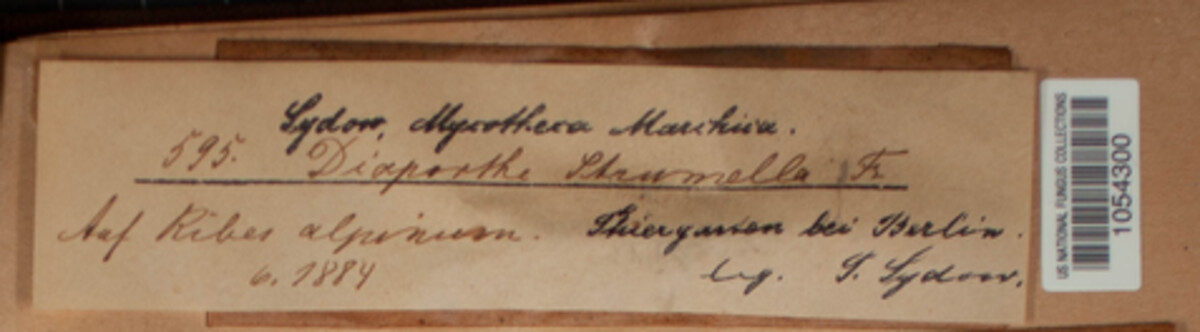 Sydow, Mycotheca Marchica.
595. Diaporthe Strumella Fr.
Auf Ribes alpinum. Thiergarten bei Berlin.
6. 1884 leg. P. Sydow.
US NATIONAL FUNGUS COLLECTIONS
1054300